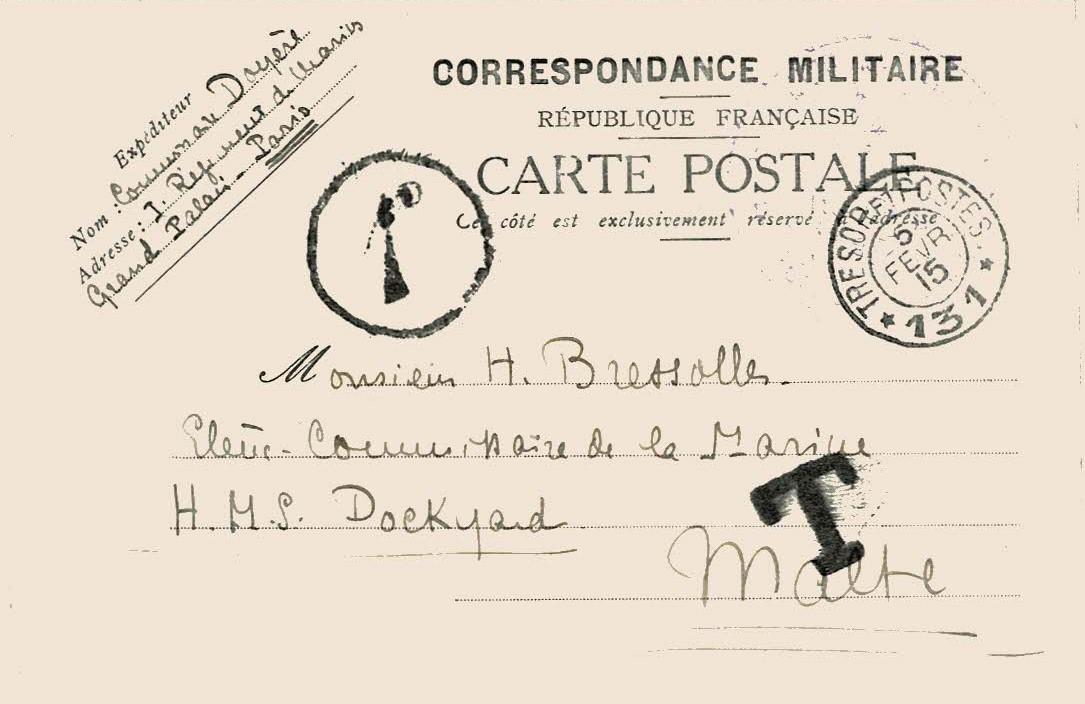 Expéditeur
Nom : Commissaire Doyère
Adresse : 1. Régiment de Marins
Grand Palais - Paris
CORRESPONDANCE MILITAIRE
RÉPUBLIQUE FRANÇAISE
CARTE POSTALE
Ce côté est exclusivement réservé à l'adresse
TRESOR ET POSTES
5
FEVR
15
* 131 *
Monsieur H. Bressolles
Elève-Commissaire de la Marine
H.M.S. Dockyard
T
Malte